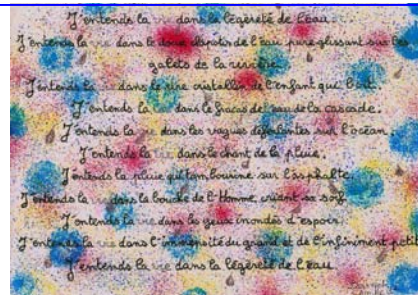 J'entends la vie dans la légèreté de l'eau.
J'entends la vie dans le doux clapotis de l'eau pure glissant sur les
galets de la rivière.
J'entends la vie dans le rire cristallin de l'enfant qui boit.
J'entends la vie dans le fracas de l'eau de la cascade.
J'entends la vie dans les vagues déferlantes sur l'océan.
J'entends la vie dans le chant de la pluie.
J'entends la pluie qui tambourine sur l'asphalte.
J'entends la vie dans la bouche de l'Homme, criant sa soif.
J'entends la vie dans les yeux inondés d'espoir.
J'entends la vie dans l'immensité du grand et de l'infiniment petit.
J'entends la vie dans la légèreté de l'eau.